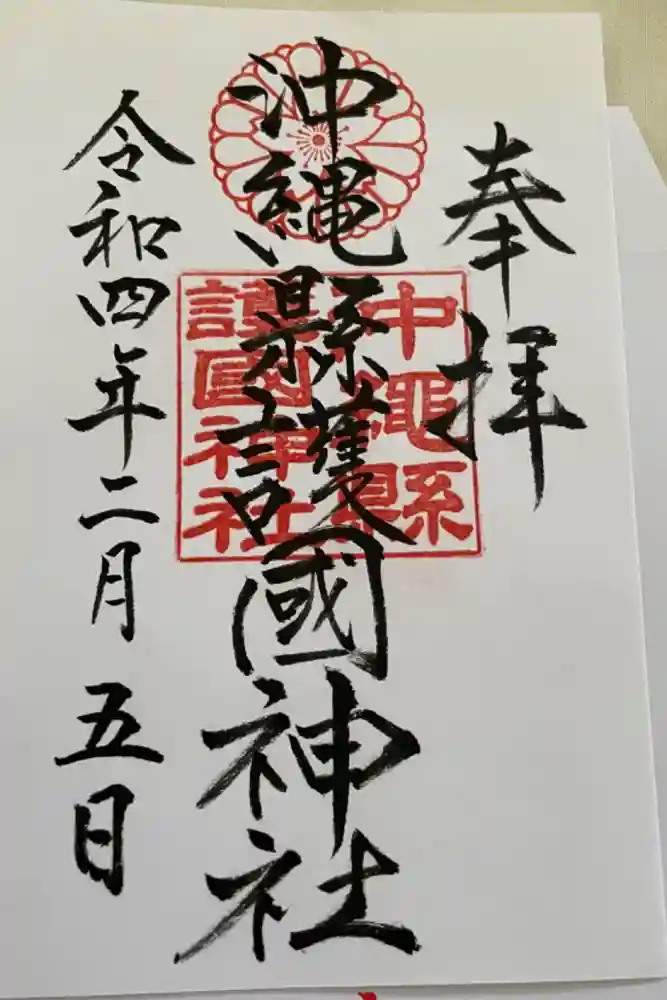 奉拝
沖縄縣護國神社
沖繩縣
護國神社
令和四年二月五日